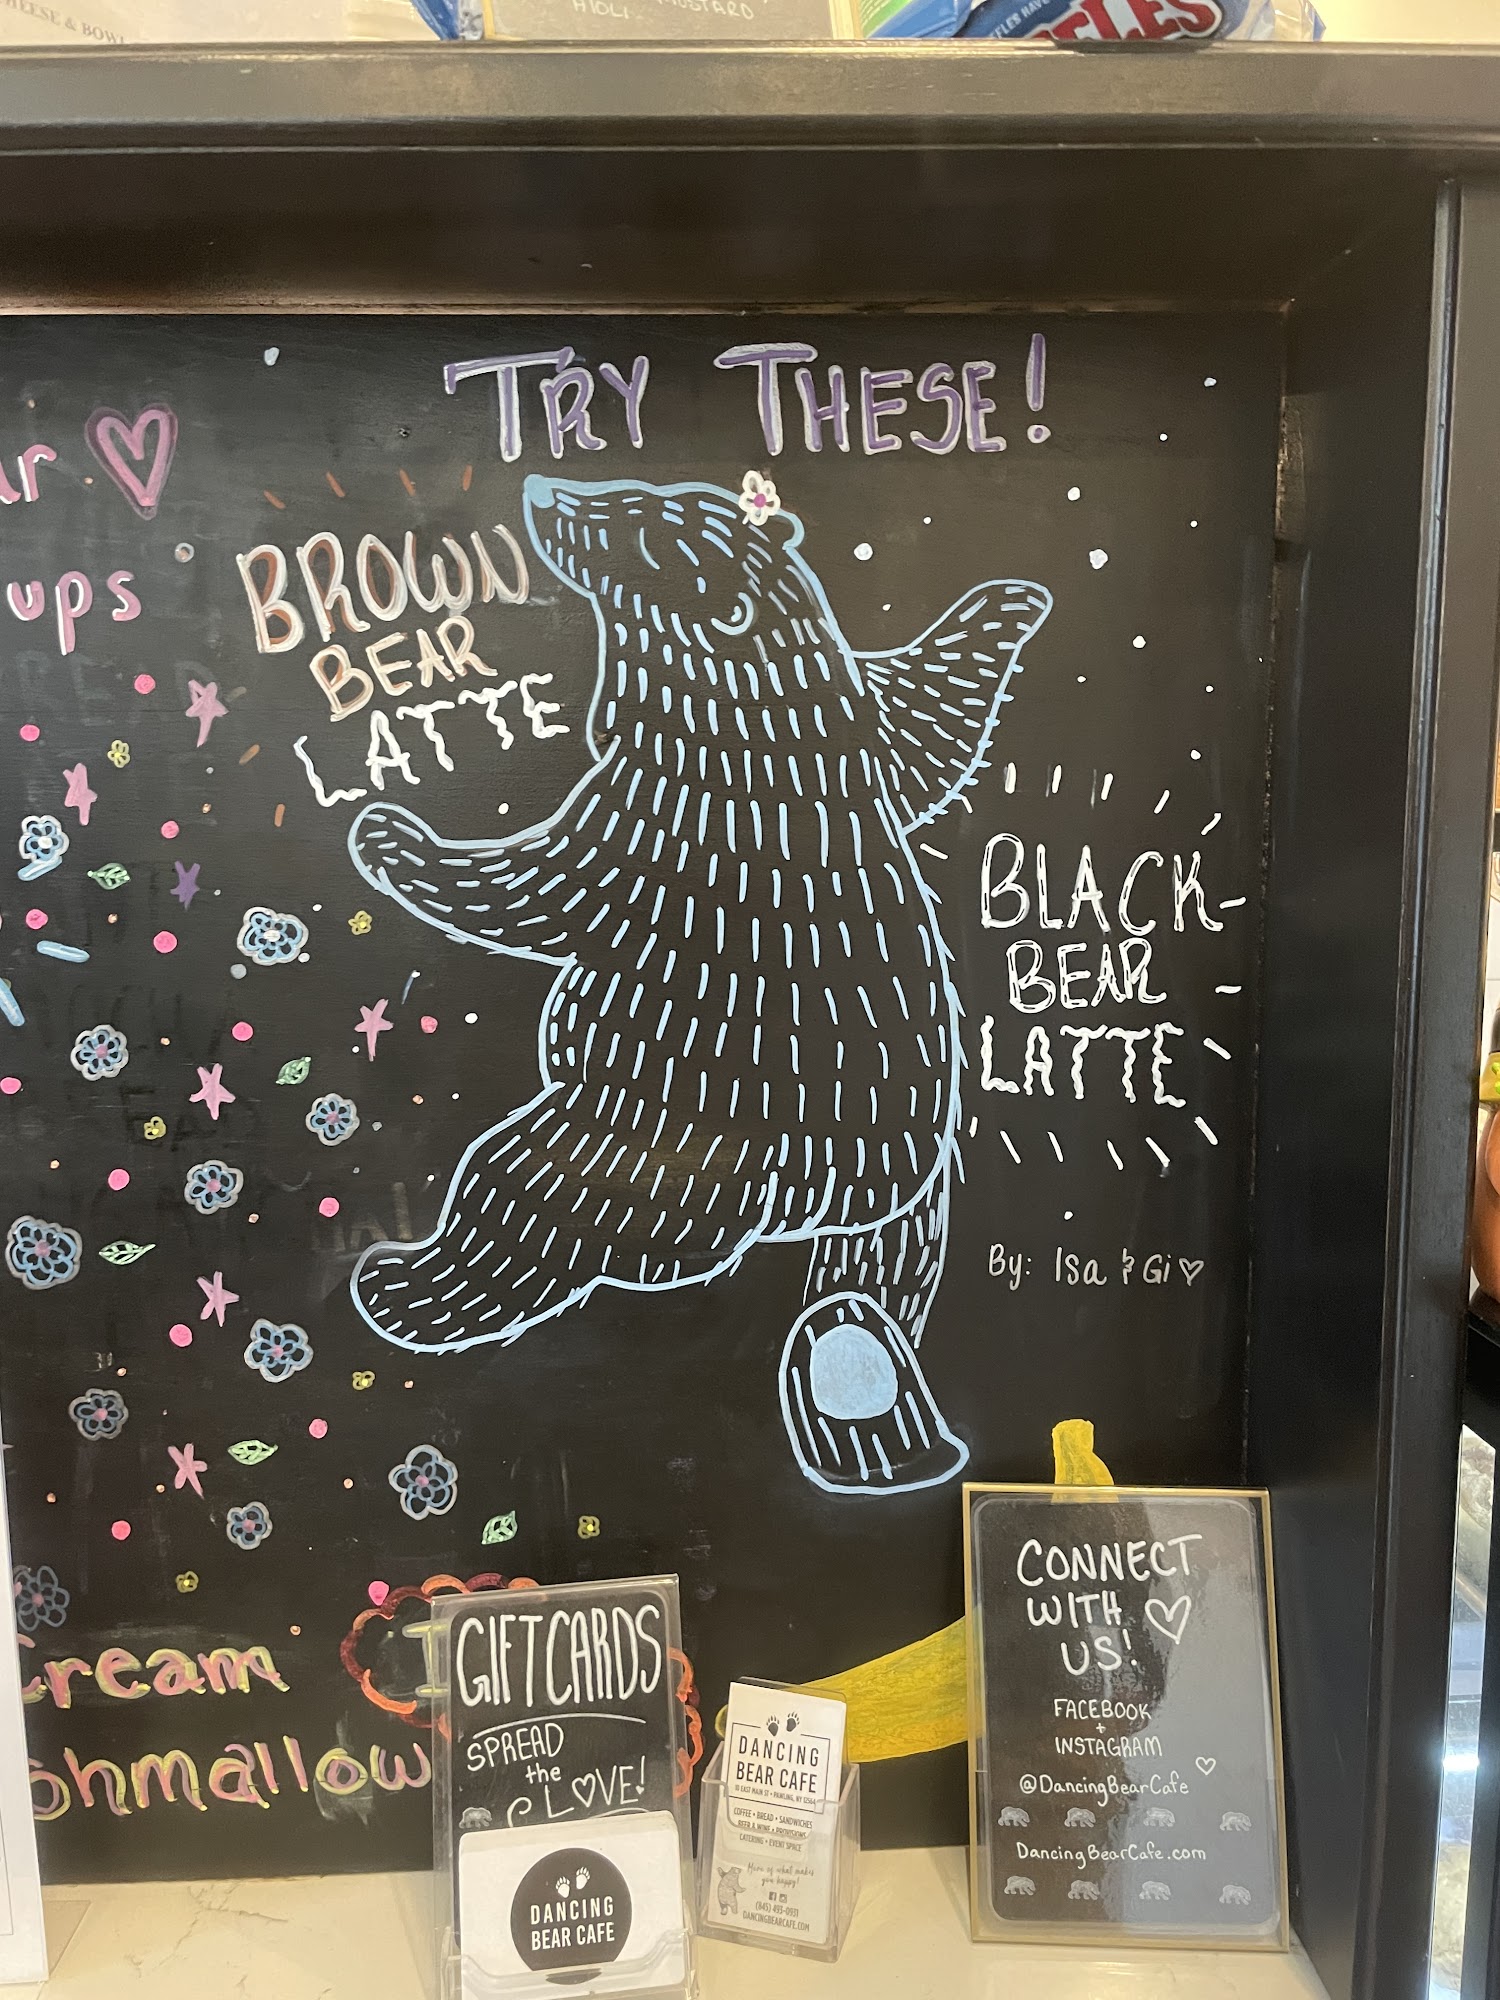 HEESE & BOWL
AIOLI
MUSTARD
TRY THESE!
ar
ups
BROWN
BEAR
LATTE
BLACK
BEAR
LATTE
By: Isa & Gi
cream
shmallow
GIFT CARDS
SPREAD
the
LOVE!
DANCING
BEAR CAFE
DANCING
BEAR CAFE
10 EAST MAIN ST • PAWLING, NY 12564
COFFEE • BREAD • SANDWICHES
BEER & WINE • PROVISIONS
CATERING • EVENT SPACE
More of what makes
you happy!
(845) 493-0931
DANCINGBEARCAFE.COM
CONNECT
WITH
US!
FACEBOOK
+
INSTAGRAM
@DancingBearCafe
DancingBearCafe.com